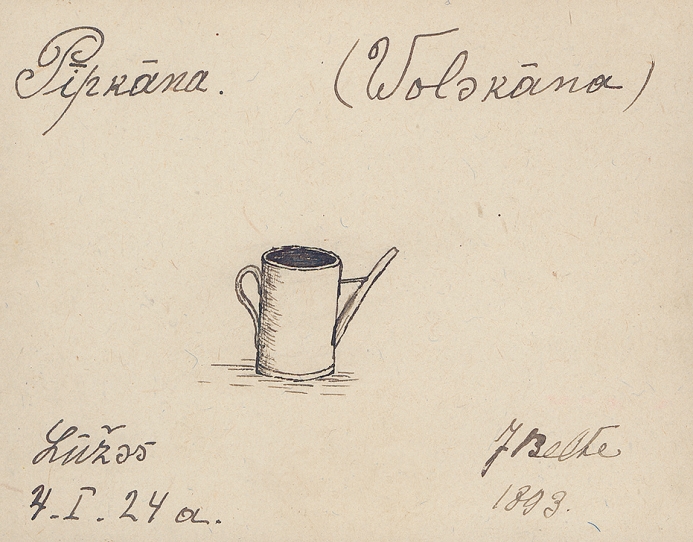 Pīpkāna. (Woləkāna)
Lūžəs J Belte
4. I. 24 a. 1893.